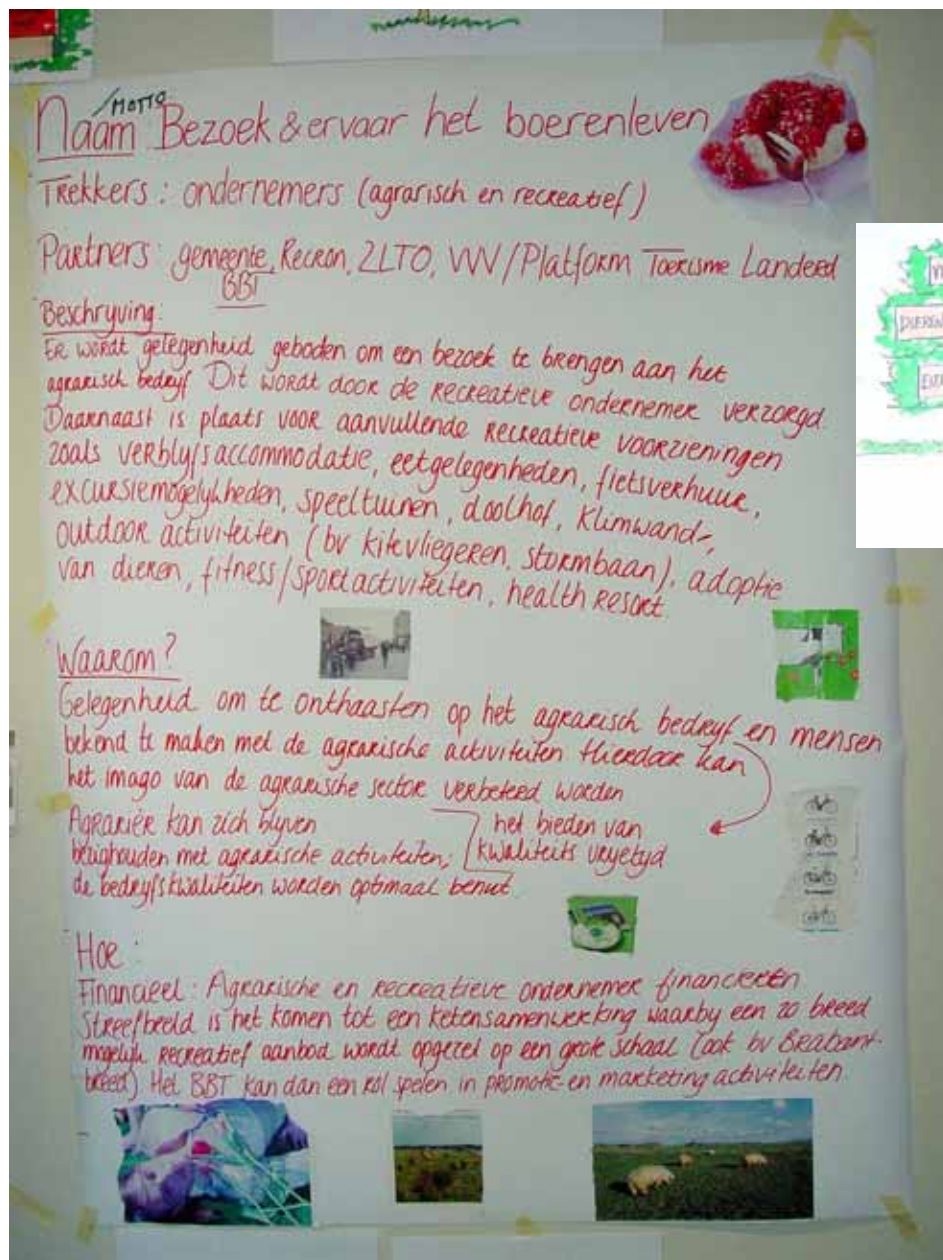 /MOTTO
Naam Bezoek & ervaar het boerenleven
Trekkers : ondernemers (agrarisch en recreatief)
Partners : gemeente, Recron, ZLTO, VVV/Platform Toerisme Landerd
BBT
Beschryving:
Er wordt gelegenheid geboden om een bezoek te brengen aan het
agrarisch bedryf Dit wordt door de recreatieve ondernemer verzorgd.
Daarnaast is plaats voor aanvullende recreatieve voorzieningen
zoals verblyfsaccommodatie, eetgelegenheden, fietsverhuur,
excursiemogelykheden, speeltuinen, doolhof, klimwand,
outdoor activiteiten (bv kitevliegeren, stormbaan), adoptie
van dieren, fitness/sportactiviteiten, health resort.
Waarom?
Gelegenheid om te onthaasten op het agrarisch bedryf en mensen
bekend te maken met de agrarische activiteiten Hierdoor kan
het imago van de agrarische sector verbeterd worden
Agrariër kan zich blyven
bezighouden met agrarische activiteiten;
de bedryfskwaliteiten worden optimaal benut.
het bieden van
kwaliteits vryetyd
Hoe :
Financieel : Agrarische en recreatieve ondernemer financieren.
Streefbeeld is het komen tot een ketensamenwerking waarby een zo breed
mogelyk recreatief aanbod wordt opgezet op een grote schaal (ook bv Brabant-
breed) Het BBT kan dan een rol spelen in promotie- en marketing activiteiten.